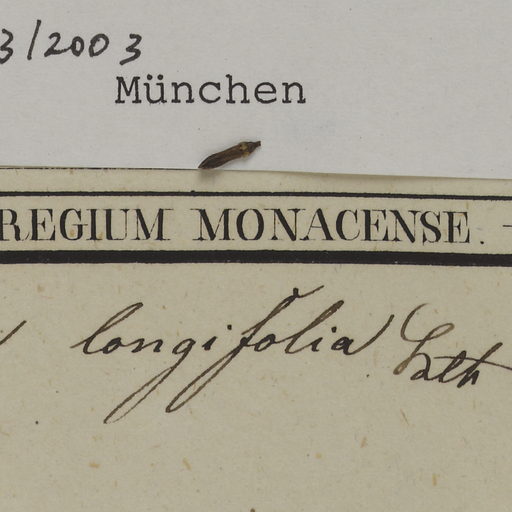 3/2003
München
REGIUM MONACENSE.
longifolia